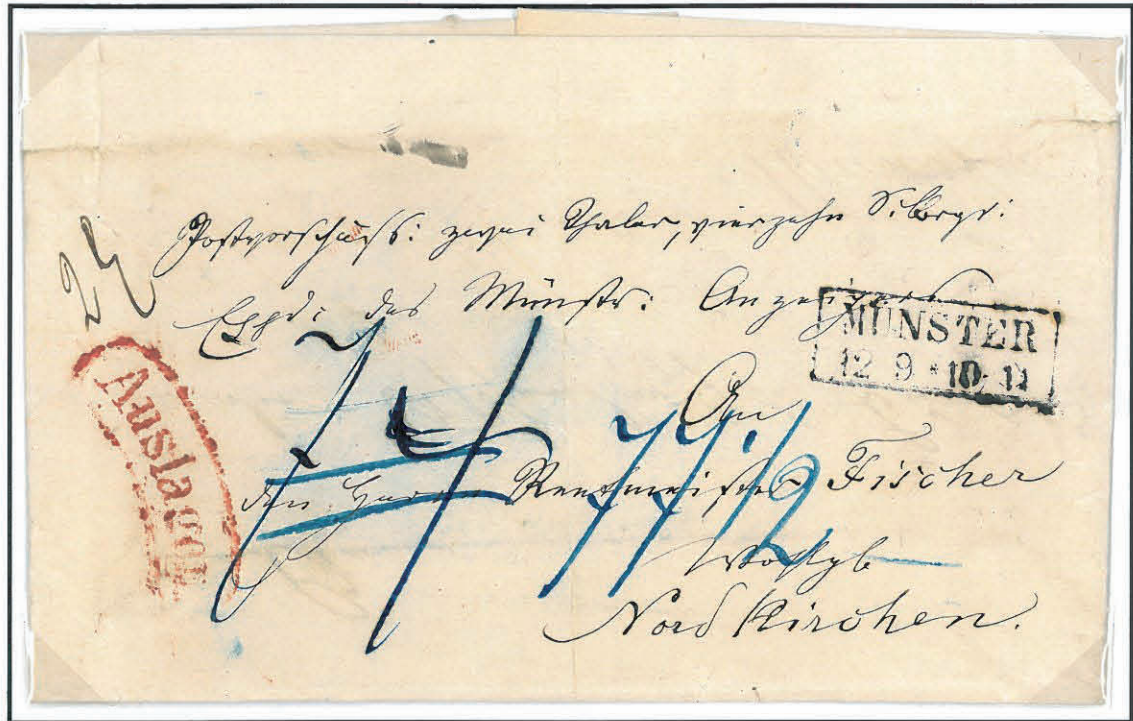 Postvorschuss: zwei Thaler, vierzehn Silbergr:
Expd: des Münstr: Anzeigers
MÜNSTER
12 9 * 10-11
Auslagen
An
den Herrn Rentmeister Fischer
Wohlgb
Nordkirchen.